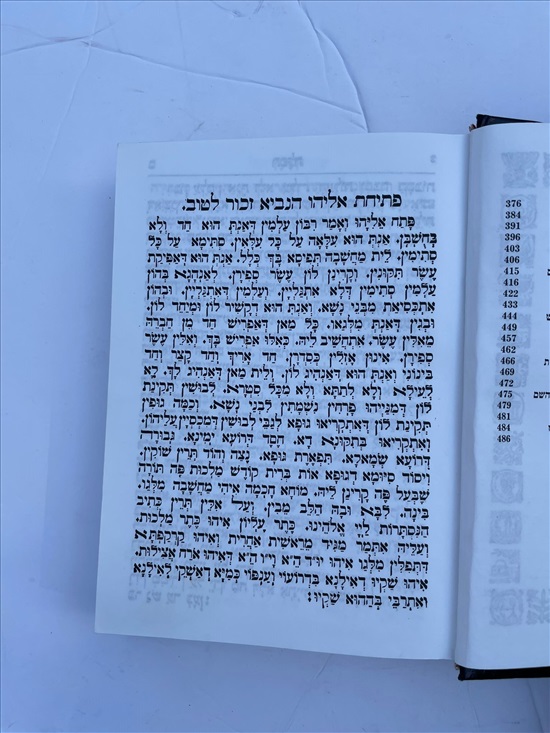 פתיחת אליהו הנביא זכור לטוב.
פָּתַח אֵלִיָּהוּ וְאָמַר רִבּוֹן עָלְמִין דְּאַנְתְּ הוּא חַד וְלָא
בְּחֻשְׁבָּן. אַנְתְּ הוּא עִלָּאָה עַל כָּל עִלָּאִין. סְתִימָא עַל כָּל
סְתִימִין. לֵית מַחֲשָׁבָה תְּפִיסָא בָּךְ כְּלָל. אַנְתְּ הוּא דְּאַפִּיקַת
עֲשַׂר תִּקּוּנִין. וְקָרֵינָן לוֹן עֲשַׂר סְפִירָן. לְאַנְהָגָא בְּהוֹן
עָלְמִין סְתִימִין דְּלָא אִתְגַּלְיָין. וְעָלְמִין דְּאִתְגַּלְיָין. וּבְהוֹן
אִתְכְּסִיאַת מִבְּנֵי נָשָׁא. וְאַנְתְּ הוּא דְּקָשִׁיר לוֹן וּמְיַחֵד לוֹן.
וּבְגִין דְּאַנְתְּ מִלְּגָאו. כָּל מָאן דְּאַפְרִישׁ חַד מִן חַבְרֵהּ
מֵאִלֵּין עֲשַׂר. אִתְחֲשִׁיב לֵיהּ. כְּאִלּוּ אַפְרִישׁ בָּךְ. וְאִלֵּין עֲשַׂר
סְפִירָן. אִינּוּן אָזְלִין כְּסִדְרָן. חַד אָרִיךְ וְחַד קָצַר וְחַד
בֵּינוֹנִי וְאַנְתְּ הוּא דְּאַנְהִיג לוֹן. וְלֵית מָאן דְּאַנְהִיג לָךְ. לָא
לְעֵילָא וְלָא לְתַתָּא וְלָא מִכָּל סִטְרָא. לְבוּשִׁין תְּקִינַת
לוֹן דְּמִנַּיְיהוּ פָּרְחִין נִשְׁמָתִין לִבְנֵי נָשָׁא. וְכַמָּה גוּפִין
תְּקִינַת לוֹן דְּאִתְקְרִיאוּ גּוּפָא לְגַבֵּי לְבוּשִׁין דִּמְכַסְיָן עֲלֵיהוֹן.
וְאִתְקְרִיאוּ בְּתִקּוּנָא דָא. חֶסֶד דְּרוֹעָא יְמִינָא. גְּבוּרָה
דְּרוֹעָא שְׂמָאלָא. תִּפְאֶרֶת גּוּפָא. נֶצַח וְהוֹד תְּרֵין שׁוֹקִין.
וִיסוֹד סִיּוּמָא דְגוּפָא אוֹת בְּרִית קוֹדֶשׁ מַלְכוּת פֶּה תּוֹרָה
שֶׁבְּעַל פֶּה קָרֵינָן לֵיהּ. מוֹחָא חָכְמָה אִיהִי מַחֲשָׁבָה מִלְּגָו.
בִּינָה לִבָּא וּבָהּ הַלֵּב מֵבִין. וְעַל אִלֵּין תְּרֵין כְּתִיב
הַנִּסְתָּרוֹת לַיְיָ אֱלֹהֵינוּ. כֶּתֶר עֶלְיוֹן אִיהוּ כֶּתֶר מַלְכוּת.
וְעָלֵיהּ אִתְּמַר מַגִּיד מֵרֵאשִׁית אַחֲרִית וְאִיהוּ קַרְקַפְתָּא
דִּתְפִלִּין מִלְּגָו אִיהוּ יוּ״ד הֵ״א וָי״ו הֵ״א דְּאִיהוּ אֹרַח אֲצִילוּת.
אִיהוּ שַׁקְיוּ דְּאִילָנָא בִּדְרוֹעוֹי וְעַנְפּוֹי כְּמַיָּא דְּאַשְׁקֵי לְאִילָנָא
וְאִתְרַבֵּי בְּהַהוּא שַׁקְיוּ:
376
384
391
396
403
406
415
416
422
433
444
449
457
462
466
469
472
475
479
481
484
486